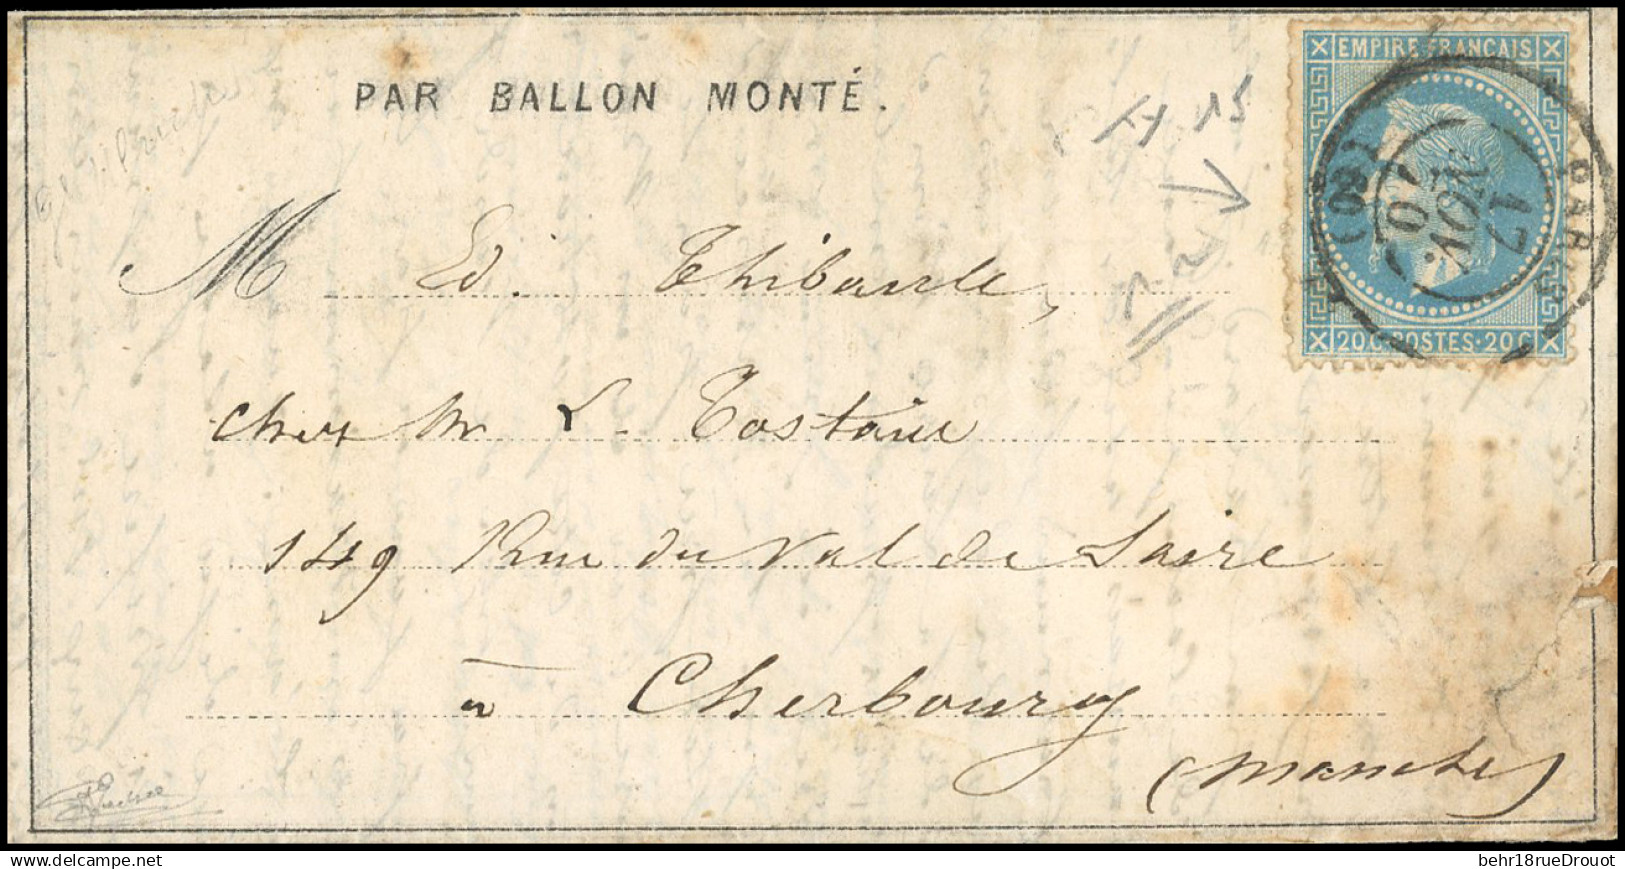 PAR BALLON MONTÉ.
EMPIRE FRANÇAIS
PARIS
17
NOV.
70
(60)
20 C. POSTES. 20 C
M Ed. Thibault,
chez Mr L. Tostain
149 Rue du Val de Saire
à Cherbourg
(Manche)
delcampe.net
behr18rueDrouot